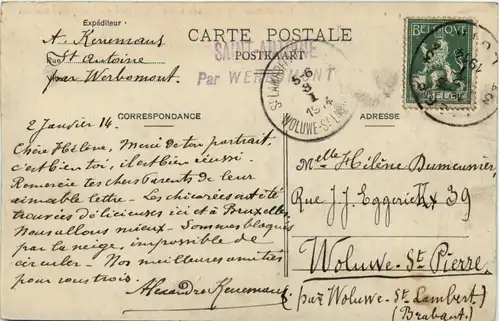 CARTE POSTALE
POSTKAART
Expéditeur :
A. Kenemans
St Antoine
par Werbomont
Rue
SAINT-ANTOINE
Par WERBOMONT
BELGIQUE
BELGIË
WOLUWE-ST-LAMBERT
CORRESPONDANCE
ADRESSE
2 Janvier 14.
Chère Hélène, Merci de ton portrait,
c'est bien toi, il est bien réussi.
Remercie tes chers Parents de leur
aimable lettre. Les chicorées ont été
trouvées délicieuses ici et à Bruxelles.
Nous allons mieux. Sommes bloqués
par la neige, impossible de
circuler. Nos meilleures amitiés
pour vous trois.
Alexandre Kenemans
Melle Hélène Dumeunier
Rue J. J. Eggericx 39
Woluwe-St-Pierre
(par Woluwe-St Lambert)
(Brabant)